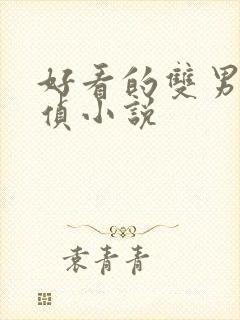 好看的雙男
偵小說
袁青青